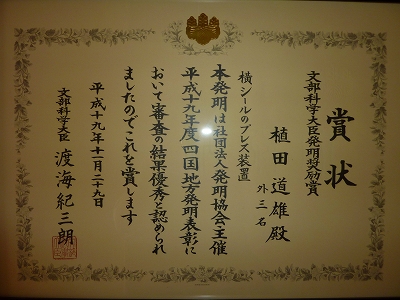 賞状
文部科学大臣発明奨励賞
植田道雄殿
外三名
横シールのプレス装置
本発明は社団法人発明協会主催
平成十九年度四国地方発明表彰に
おいて審査の結果優秀と認められ
ましたのでこれを賞します
平成十九年十一月二十九日
文部科学大臣
渡海紀三朗